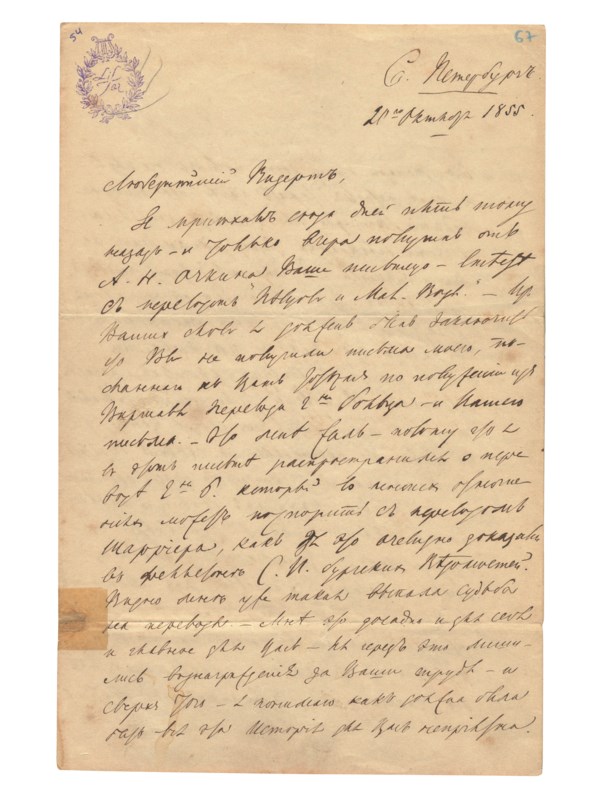 54
67
С. Петербургъ.
20го Октября 1855.
Любезнѣйшій Видертъ,
Я пріѣхалъ сюда дней пять тому
назадъ – и только вчера получилъ отъ
А. Н. Очкина Ваше письмо – вмѣстѣ
съ переводомъ "Пѣвцовъ и Мал. Водъ." – Изъ
Вашихъ словъ я долженъ былъ заключить
что Вы не получили письма моего, по-
сланнаго къ Вамъ тотчасъ по полученіи изъ
Варшавы перевода – и Вашего
письма. – Это мнѣ жаль – потому что я
въ этомъ письмѣ распространился о пере-
водѣ который во многихъ отноше-
ніяхъ можетъ поспорить съ переводомъ
Шаррьера, какъ это очевидно доказали
въ фельетонѣ С. П. бургскихъ Вѣдомостей.
Видно мнѣ уже такая выпала судьба
на переводы. – Мнѣ это досадно и для себя
и главное для Васъ – Вы черезъ это лиши-
лись вознагражденія за Ваши труды – и
сверхъ того – я понимаю какъ должна была
быть вся эта исторія для Васъ непріятна.